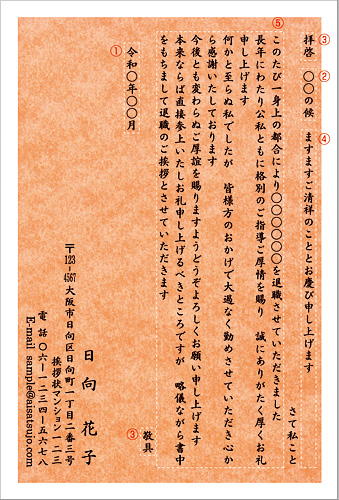 ⑤
拝啓 ③
〇〇の候 ますますご清祥のこととお慶び申し上げます ② ④
さて私こと
このたび一身上の都合により〇〇〇〇〇を退職させていただきました
長年にわたり公私ともに格別のご指導ご厚情を賜り 誠にありがたく厚くお礼
申し上げます
何かと至らぬ私でしたが 皆様方のおかげで大過なく勤めさせていただき心か
ら感謝いたしております
今後とも変わらぬご厚誼を賜りますようどうぞよろしくお願い申し上げます
本来ならば直接参上いたしお礼申し上げるべきところですが 略儀ながら書中
をもちまして退職のご挨拶とさせていただきます
③ 敬具
① 令和〇年〇〇月
日向 花子
〒123
4567 大阪市日向区日向町一丁目二番三号
挨拶状マンション一二三
電話 〇六-一二三四-五六七八
E-mail sample@aisatsujo.com